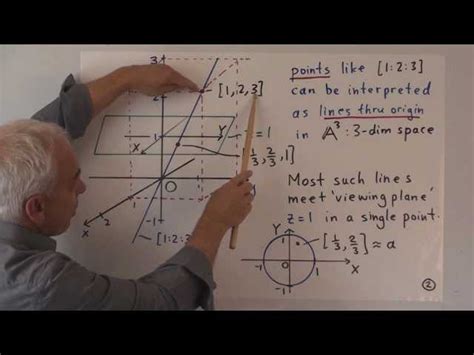 3
2
[1,2,3]
Y
= 1
1/3, 2/3, 1]
O
X
2
-1
[1:2:3]
-1
points like [1:2:3]
can be interpreted
as lines thru origin
in A³ : 3-dim space
Most such lines
meet 'viewing plane'
z=1 in a single point.
Y
1
[1/3, 2/3] ≈ a
-1
O
1
X
-1
2